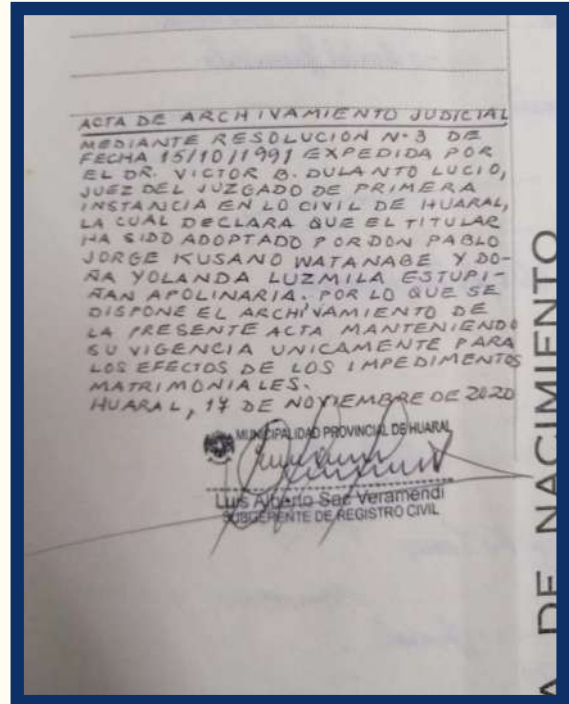 ACTA DE ARCHIVAMIENTO JUDICIAL
MEDIANTE RESOLUCION N·3 DE
FECHA 15/10/1991 EXPEDIDA POR
EL DR. VICTOR B. DULANTO LUCIO,
JUEZ DEL JUZGADO DE PRIMERA
INSTANCIA EN LO CIVIL DE HUARAL,
LA CUAL DECLARA QUE EL TITULAR
HA SIDO ADOPTADO POR DON PABLO
JORGE KUSANO WATANABE Y DO-
ÑA YOLANDA LUZMILA ESTUPI-
ÑAN APOLINARIA. POR LO QUE SE
DISPONE EL ARCHIVAMIENTO DE
LA PRESENTE ACTA MANTENIENDO
SU VIGENCIA UNICAMENTE PARA
LOS EFECTOS DE LOS IMPEDIMENTOS
MATRIMONIALES.
HUARAL, 17 DE NOVIEMBRE DE 2020
MUNICIPALIDAD PROVINCIAL DE HUARAL
Luis Alberto Saz Veramendi
SUBGERENTE DE REGISTRO CIVIL
A DE NACIMIENTO